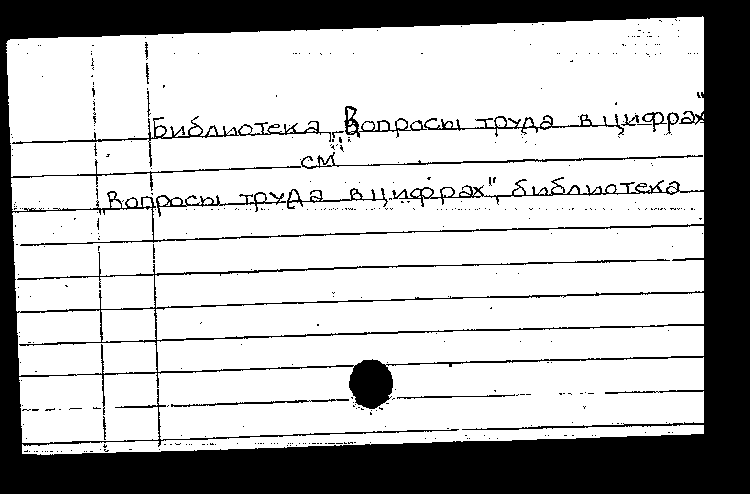 Библиотека „Вопросы труда в цифрах"
см
„Вопросы труда в цифрах", библиотека